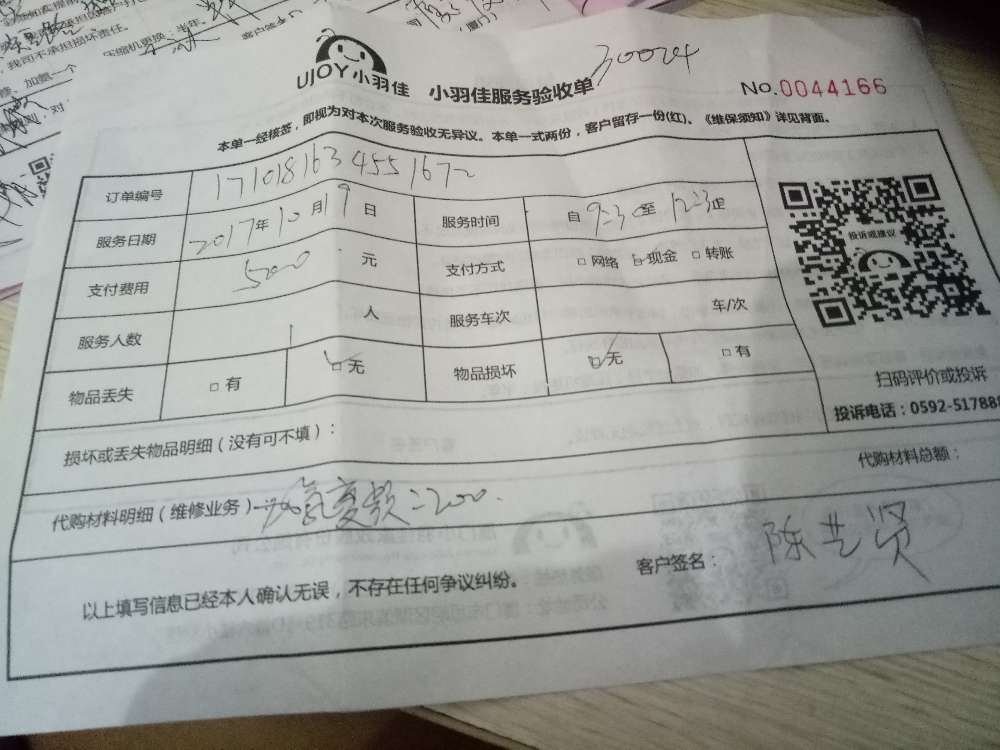 我司不承担损坏责任。
压缩机更换：半年。
UJOY小羽佳 小羽佳服务验收单 30024
No.0044166
本单一经核签，即视为对本次服务验收无异议。本单一式两份，客户留存一份(红)。《维保须知》详见背面。
订单编号 1710181634551672
服务日期 2017年10月19日 服务时间 自9:30至12:3止
支付费用 500元 支付方式 □网络 □现金 □转账
服务人数 1人 服务车次 车/次
物品丢失 □有 □无 物品损坏 □无 □有
投诉或建议
扫码评价或投诉
投诉电话：0592-517888
损坏或丢失物品明细（没有可不填）：
代购材料总额：
代购材料明细（维修业务） 氨 款=200.
以上填写信息已经本人确认无误，不存在任何争议纠纷。 客户签名： 陈艺贤